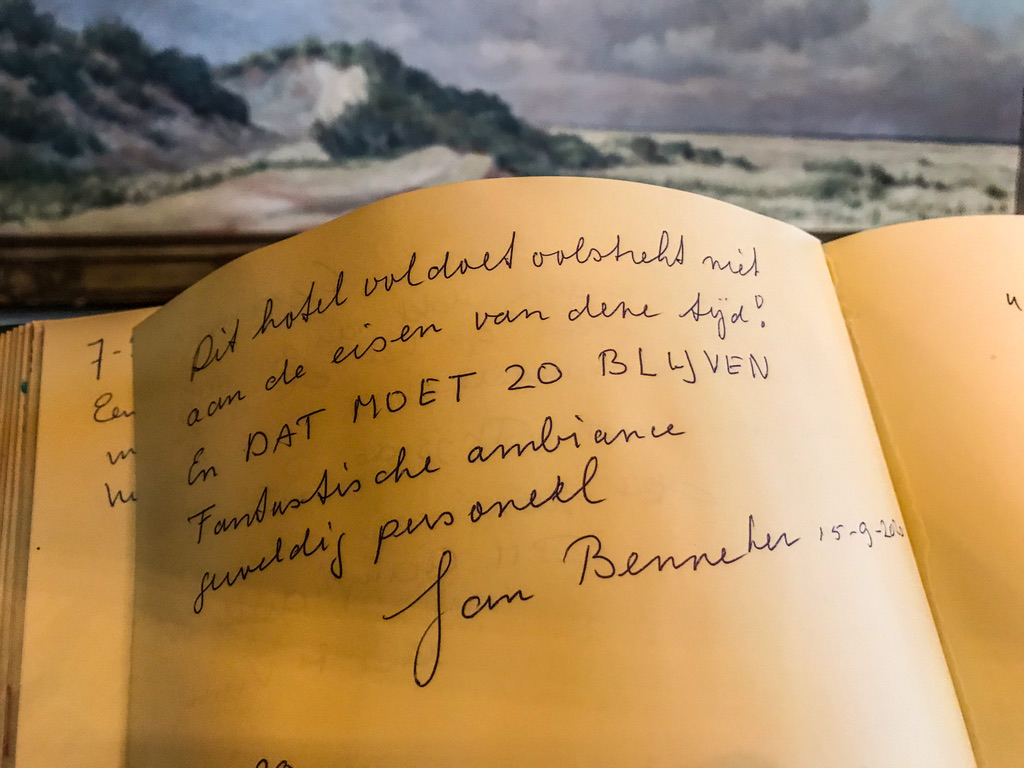 Dit hotel voldoet volstrekt niet
aan de eisen van deze tijd!
En DAT MOET ZO BLIJVEN
Fantastische ambiance
geweldig personeel
Jan Benneker 15-9-20
7-
Een